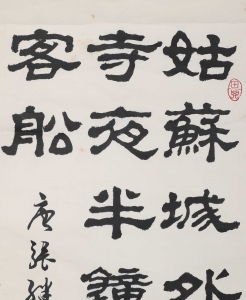 姑蘇城外
寺夜半鐘
客船
唐張繼